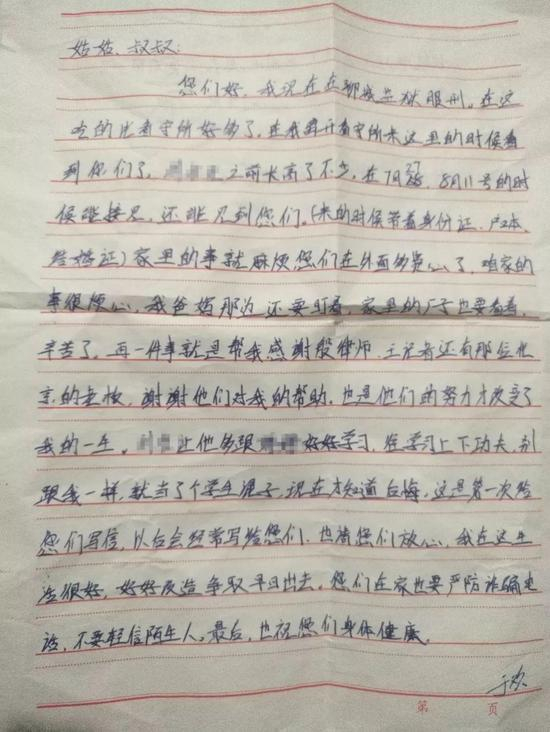 姑姑、叔叔:
您们好,我现在在聊城监狱服刑。在这
吃的比看守所好多了,在我离开看守所来这里的时候看
到你们了,之前长高了不少,在7月27、8月11号的时
候能接见,还能见到您们。(来的时候带着身份证、户口本、
结婚证)家里的事就麻烦您们在外面多费心了,咱家的
事很烦心,我爸妈那边还要盯着,家里的厂子也要看着,
辛苦了,再一件事就是帮我感谢殷律师、王记者还有那位北
京的,谢谢他们对我的帮助,也是他们的努力才改变了
我的一生。让他多跟好好学习,在学习上下功夫,别
跟我一样,就当了个学生混子,现在才知道后悔,这是第一次给
您们写信,以后会经常写给您们,也请您们放心,我在这生
活很好,好好改造争取早日出去。您们在家也要严防诈骗电
话,不要轻信陌生人。最后,也祝您们身体健康。
于欢
第 页